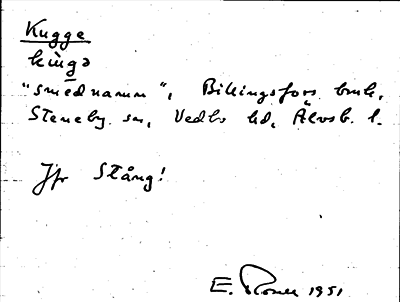 Kugge
kùgə
"smednamn", Billingsfors bruk,
Steneby sn, Vedbo hd, Älvsb. l.
Jfr Stång!
E. 1951